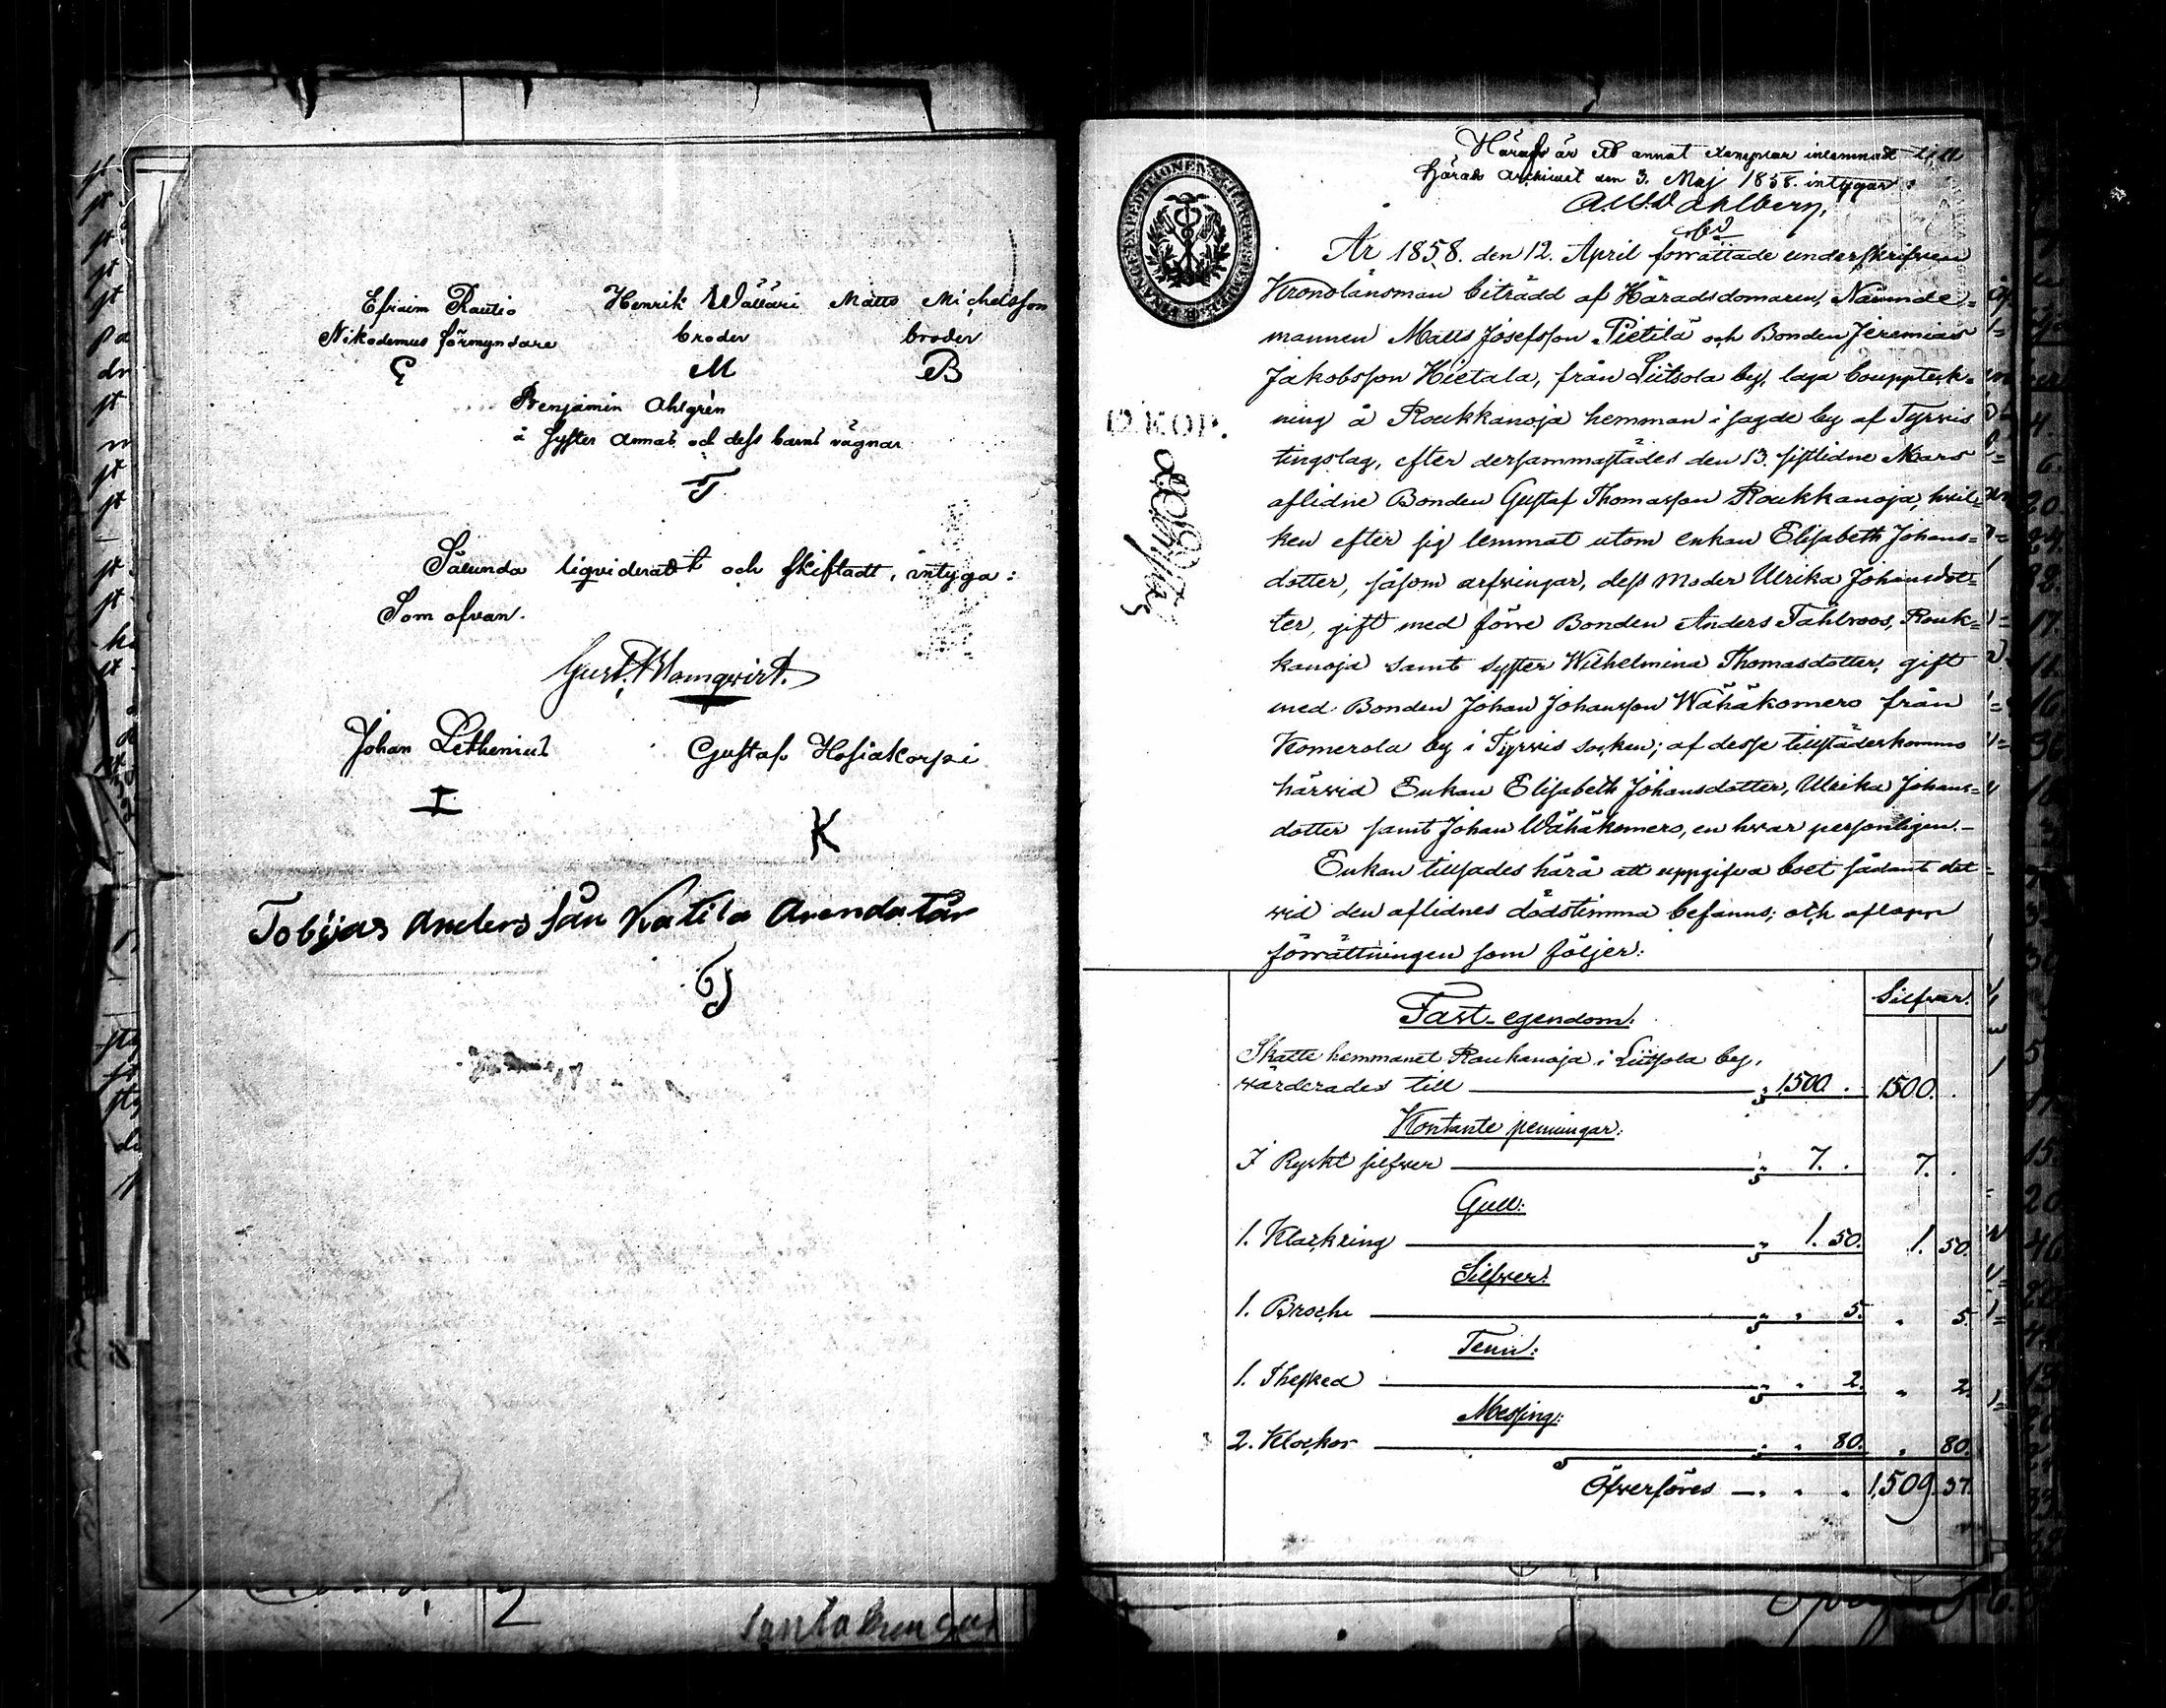 Efraim Rautio Henrik Wälläri Matts Michelsson
Nikodemus förmyndare broder broder
M B
Benjamin Ahlgrén
å Syster Annas och dess barns vägnar
T
Sålunda liqviderat och skiftadt, intyga:
Som ofvan.
Gust. Blomqvist.
Johan Lethenius Gustaf Hosiakorpi
I K
Tobijas Anders sån Katila Arendatår
Häraf är ett annat exemplar inlemnadt till
Härads Archivet den 3. Maj 1858. intygar:
FINANCE EXPEDITIONENS
År 1858. den 12. April förrättade underskrifven
Kronolänsman biträdd af Häradsdomaren, Nämnde-
mannen Matts Josefsson Pietilä och Bonden Jeremias
Jakobsson Hietala, från Liitsola by, laga bouppteck-
ning å Roukkanoja hemman i sagde by af Tyrvis
tingslag, efter dersammastädes den 13. sistlidne Mars
aflidne Bonden Gustaf Thomasson Roukkanoja, hvil-
ken efter sig lemnat utom enkan Elisabeth Johans-
dotter, såsom arfvingar, dess moder Ulrika Johansdot-
ter, gift med förre Bonden Anders Tahlroos, Rouk-
kanoja samt syster Wilhelmina Thomasdotter, gift
med Bonden Johan Johansson Wähäkomero från
Komerola by i Tyrvis socken; af desse tillstädeskommo
härvid Enkan Elisabeth Johansdotter, Ulrika Johans-
dotter samt Johan Wähäkomero, en hvar personligen.—
Enkan tillsades härå att uppgifva boet sådant det
vid den aflidnes dödstimma befanns; och aflopp
förrättningen som följer:
Silfver.
Fast-egendom:
Skatte hemmanet Roukanoja i Liitsola by,
värderades till 1500. 1500.
Kontante penningar:
I Ryskt silfver 7. 7.
Gull:
1. Klackring 1. 50. 1. 50.
Silfver:
1. Broche 5. 5.
Tenn:
1. Thesked 2. 2.
Messing:
2. Klockor 80. 80.
Öfverföres 1,509. 37.